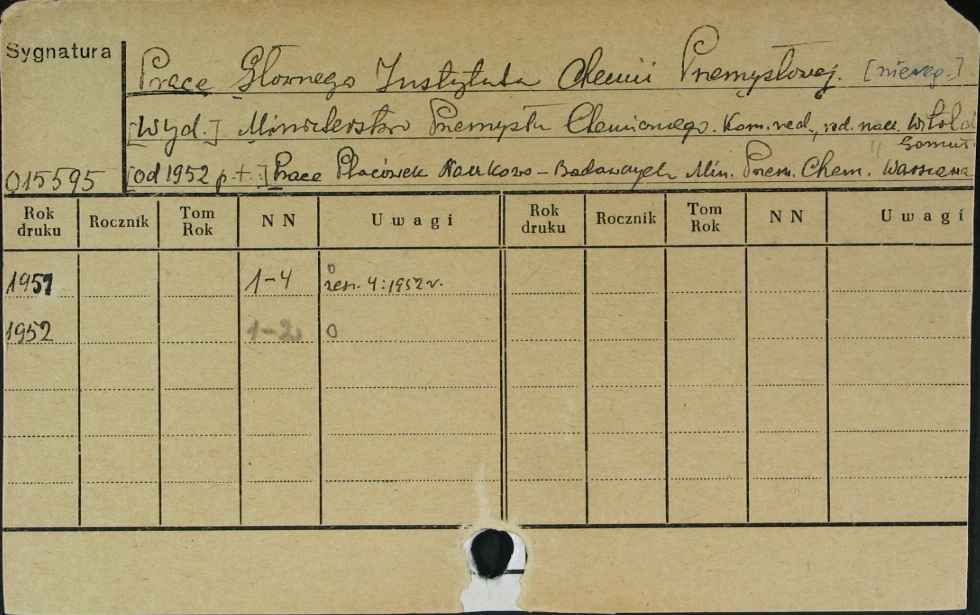 Sygnatura
Prace Głównego Instytutu Chemii Przemysłowej. [niereg.]
[Wyd.] Ministerstwo Przemysłu Chemicznego. Kom. red., red. nacz. Witold
Tomas.
015595
[Od 1952 p.t.:] Prace Placówek Naukowo-Badawczych Min. Przem. Chem. Warszawa
Rok druku Rocznik Tom Rok NN Uwagi Rok druku Rocznik Tom Rok NN Uwagi
1951 1-4 0 zesz. 4:1952 r.
1952 1-2 0